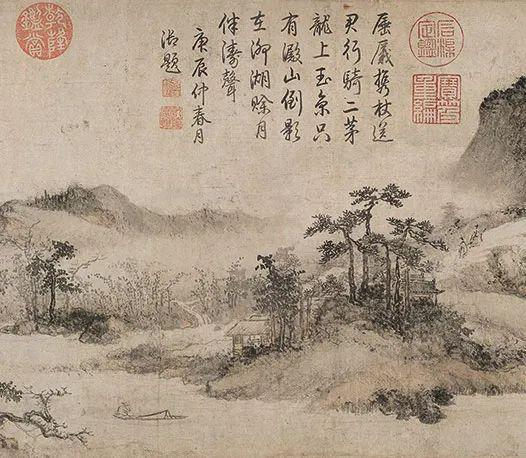 石渠定鑑
寶笈重編
層巖携杖送
君行騎二茅
龍上玉京只
有澱山倒影
在泖湖賒月
伴濤聲
庚辰仲春月
御題
乾隆鑑賞